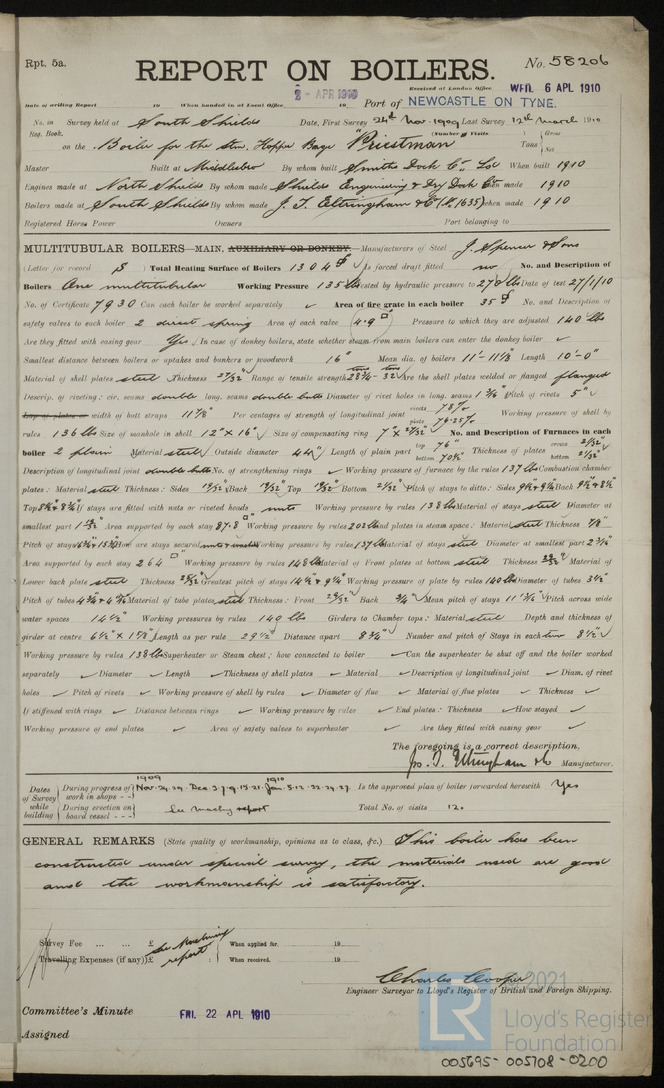 Rpt. 5a.
REPORT ON BOILERS.
No. 58206
Received at London Office WED. 6 APL 1910
Date of writing Report 19 When handed in at Local Office 2 - APR 1910 19 Port of NEWCASTLE ON TYNE.
No. in Survey held at South Shields Date, First Survey 24th Nov. 1909 Last Survey 12th March 1910
Reg. Book. (Number of Visits Gross
on the Boiler for the Stm. Hopper Barge "Priestman" Tons Net
Master Built at Middlesbro By whom built Smiths Dock Co. Ld When built 1910
Engines made at North Shields By whom made Shields Engineering & Dry Dock Co. When made 1910
Boilers made at South Shields By whom made J. T. Eltringham & Co (No. 1635) when made 1910
Registered Horse Power Owners Port belonging to
MULTITUBULAR BOILERS—MAIN, AUXILIARY OR DONKEY.—Manufacturers of Steel J. Spencer & Sons
(Letter for record S ) Total Heating Surface of Boilers 1304 Is forced draft fitted no No. and Description of
Boilers One multitubular Working Pressure 135 lbs Tested by hydraulic pressure to 270 lbs Date of test 27/1/10
No. of Certificate 7930 Can each boiler be worked separately ✓ Area of fire grate in each boiler 35 No. and Description of
safety valves to each boiler 2 direct spring Area of each valve 4.9 Pressure to which they are adjusted 140 lbs
Are they fitted with easing gear Yes In case of donkey boilers, state whether steam from main boilers can enter the donkey boiler ✓
Smallest distance between boilers or uptakes and bunkers or woodwork 16" Mean dia. of boilers 11'-11 1/8 Length 10'-0"
Material of shell plates steel Thickness 27/32" Range of tensile strength 28 3/4 - 32 Are the shell plates welded or flanged flanged
Descrip. of riveting: cir. seams double long. seams double butts Diameter of rivet holes in long. seams 1 3/16" Pitch of rivets 5"
Lap of plates or width of butt straps 11 7/8" Per centages of strength of longitudinal joint rivets 78% plate 76.25% Working pressure of shell by
rules 136 lbs Size of manhole in shell 12" x 16" Size of compensating ring 7" x 27/32" No. and Description of Furnaces in each
boiler 2 plain Material steel Outside diameter 44" Length of plain part top 76" bottom 70 1/2" Thickness of plates crown 21/32" bottom 21/32"
Description of longitudinal joint double butts No. of strengthening rings ✓ Working pressure of furnace by the rules 137 lbs Combustion chamber
plates: Material steel Thickness: Sides 19/32" Back 19/32" Top 19/32" Bottom 21/32" Pitch of stays to ditto: Sides 9 1/4 x 9 1/4 Back 9 1/4 x 8 1/2"
Top 8 3/4 x 8 1/2 If stays are fitted with nuts or riveted heads nuts Working pressure by rules 138 lbs Material of stays steel Diameter at
smallest part 1 15/32 Area supported by each stay 87.8 Working pressure by rules 202 lbs End plates in steam space: Material steel Thickness 7/8"
Pitch of stays 16 3/4 x 15 3/4 How are stays secured nuts & washers Working pressure by rules 137 lbs Material of stays steel Diameter at smallest part 2 3/16"
Area supported by each stay 264 Working pressure by rules 148 lbs Material of Front plates at bottom steel Thickness 29/32" Material of
Lower back plate steel Thickness 25/32" Greatest pitch of stays 14 1/2 x 9 1/4 Working pressure of plate by rules 140 lbs Diameter of tubes 3 1/4"
Pitch of tubes 4 3/4 x 4 9/16 Material of tube plates steel Thickness: Front 29/32" Back 3/4" Mean pitch of stays 11 3/16" Pitch across wide
water spaces 14 1/2" Working pressures by rules 140 lbs Girders to Chamber tops: Material steel Depth and thickness of
girder at centre 6 1/2" x 1 7/8" Length as per rule 29 1/2" Distance apart 8 3/4" Number and pitch of Stays in each two 8 1/2"
Working pressure by rules 138 lbs Superheater or Steam chest; how connected to boiler ✓ Can the superheater be shut off and the boiler worked
separately ✓ Diameter ✓ Length ✓ Thickness of shell plates ✓ Material ✓ Description of longitudinal joint ✓ Diam. of rivet
holes ✓ Pitch of rivets ✓ Working pressure of shell by rules ✓ Diameter of flue ✓ Material of flue plates ✓ Thickness ✓
If stiffened with rings ✓ Distance between rings ✓ Working pressure by rules ✓ End plates: Thickness ✓ How stayed ✓
Working pressure of end plates ✓ Area of safety valves to superheater ✓ Are they fitted with easing gear ✓
The foregoing is a correct description,
Jos. T. Eltringham & Co Manufacturer.
Dates of Survey while building
During progress of work in shops - - 1909 Nov. 24. 29. Dec. 3. 7. 9. 15. 21. 1910 Jan. 5. 12. 22. 24. 27. Is the approved plan of boiler forwarded herewith Yes
During erection on board vessel - - - See machy report Total No. of visits 12.
GENERAL REMARKS (State quality of workmanship, opinions as to class, &c.) This boiler has been
constructed under special survey, the materials used are good
and the workmanship is satisfactory.
Survey Fee ... ... £ : : When applied for, 19
Travelling Expenses (if any) £ : : When received, 19
See Machinery report
Charles Cooper
Engineer Surveyor to Lloyd's Register of British and Foreign Shipping.
Committee's Minute FRI. 22 APL 1910
Assigned
2021
LR
Lloyd's Register
Foundation
005695-005708-0200